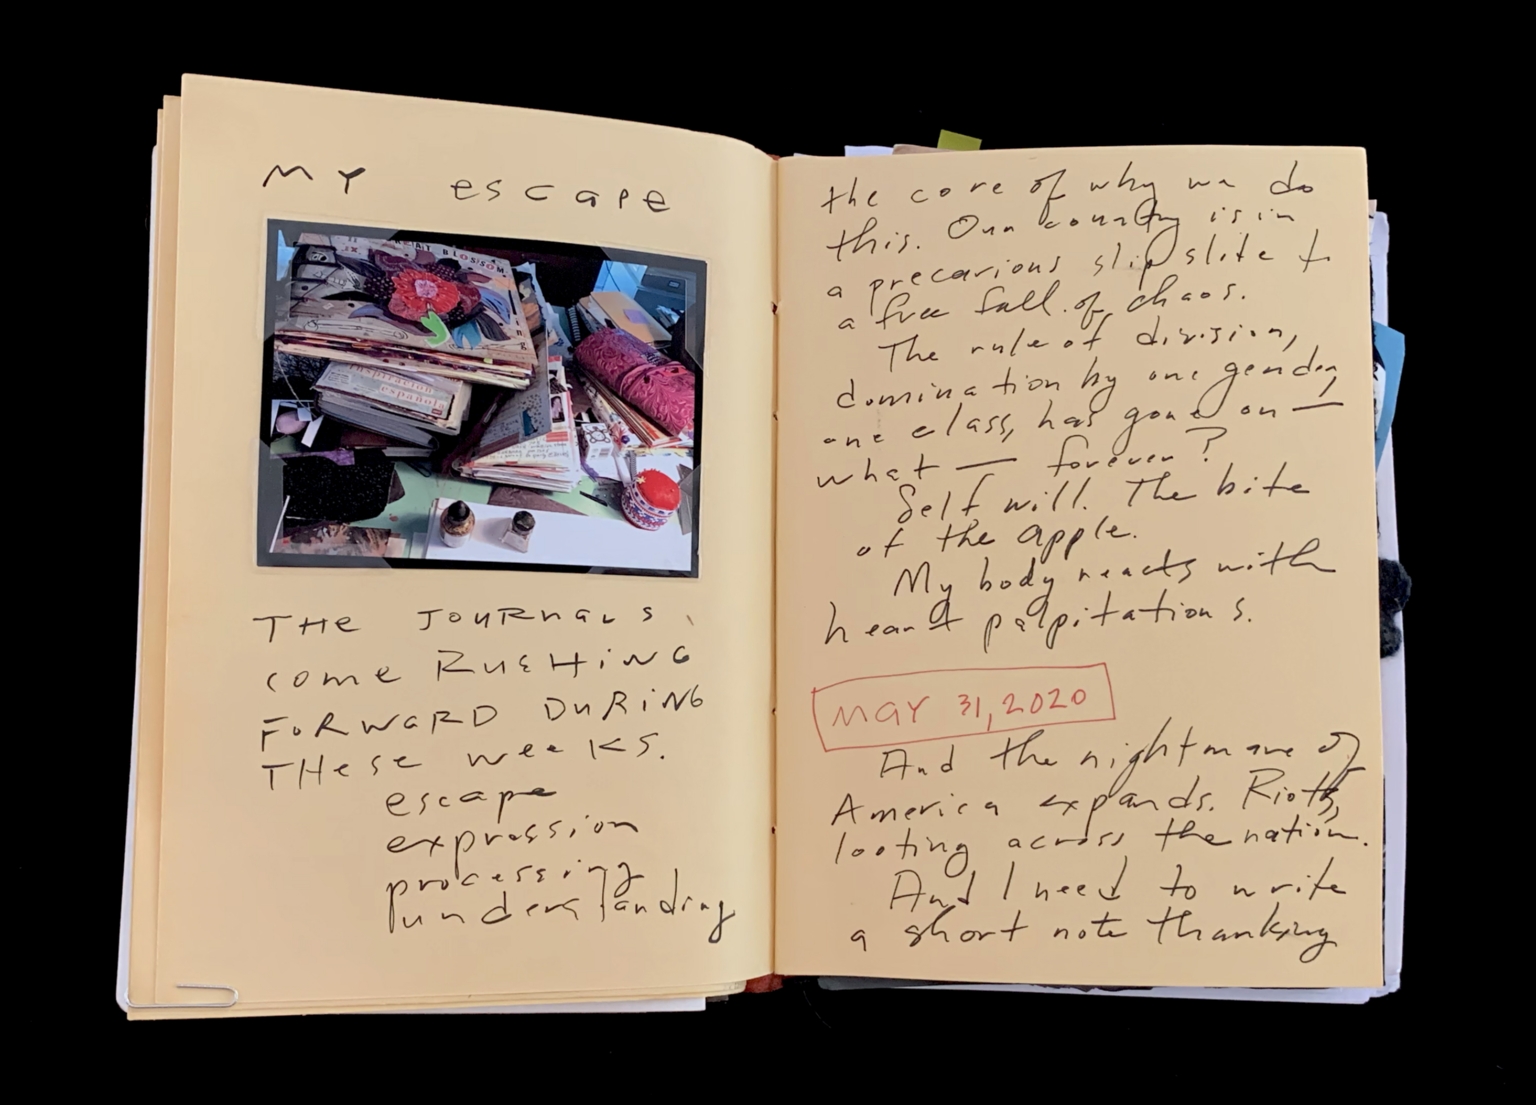 MY escape
BLOSSOM
inspiración
española
THE JOURNALS
come RUSHING
FORWARD DURING
THese weeKS.
escape
expression
processing
understanding
the core of why we do
this. Our country is in
a precarious slip slite to
a free fall of chaos.
The rule of division,
domination by one gender,
one class, has gone on —
what — forever?
Self will. The bite
of the apple.
My body reacts with
heart palpitations.
MAY 31, 2020
And the nightmare of
America expands. Riots,
looting across the nation.
And I need to write
a short note thanking